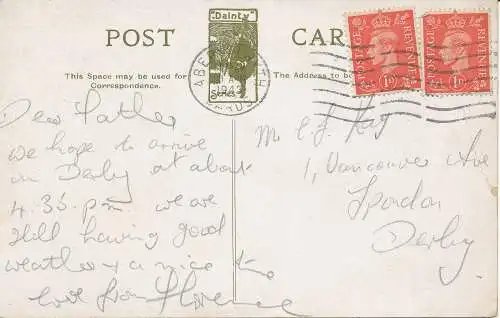 POST CARD
"Dainty"
Series
This Space may be used for
Correspondence.
The Address to be
ABERYSTWYTH
1943
CARDS
POSTAGE REVENUE
1D 1D
POSTAGE REVENUE
1D 1D
Dear Father
We hope to arrive
in Derby at about
4.35 p.m. we are
still having good
weather & a nice time
love from Florence
Mr C.J. Hay
1, Vancouver Ave
Spondon
Derby